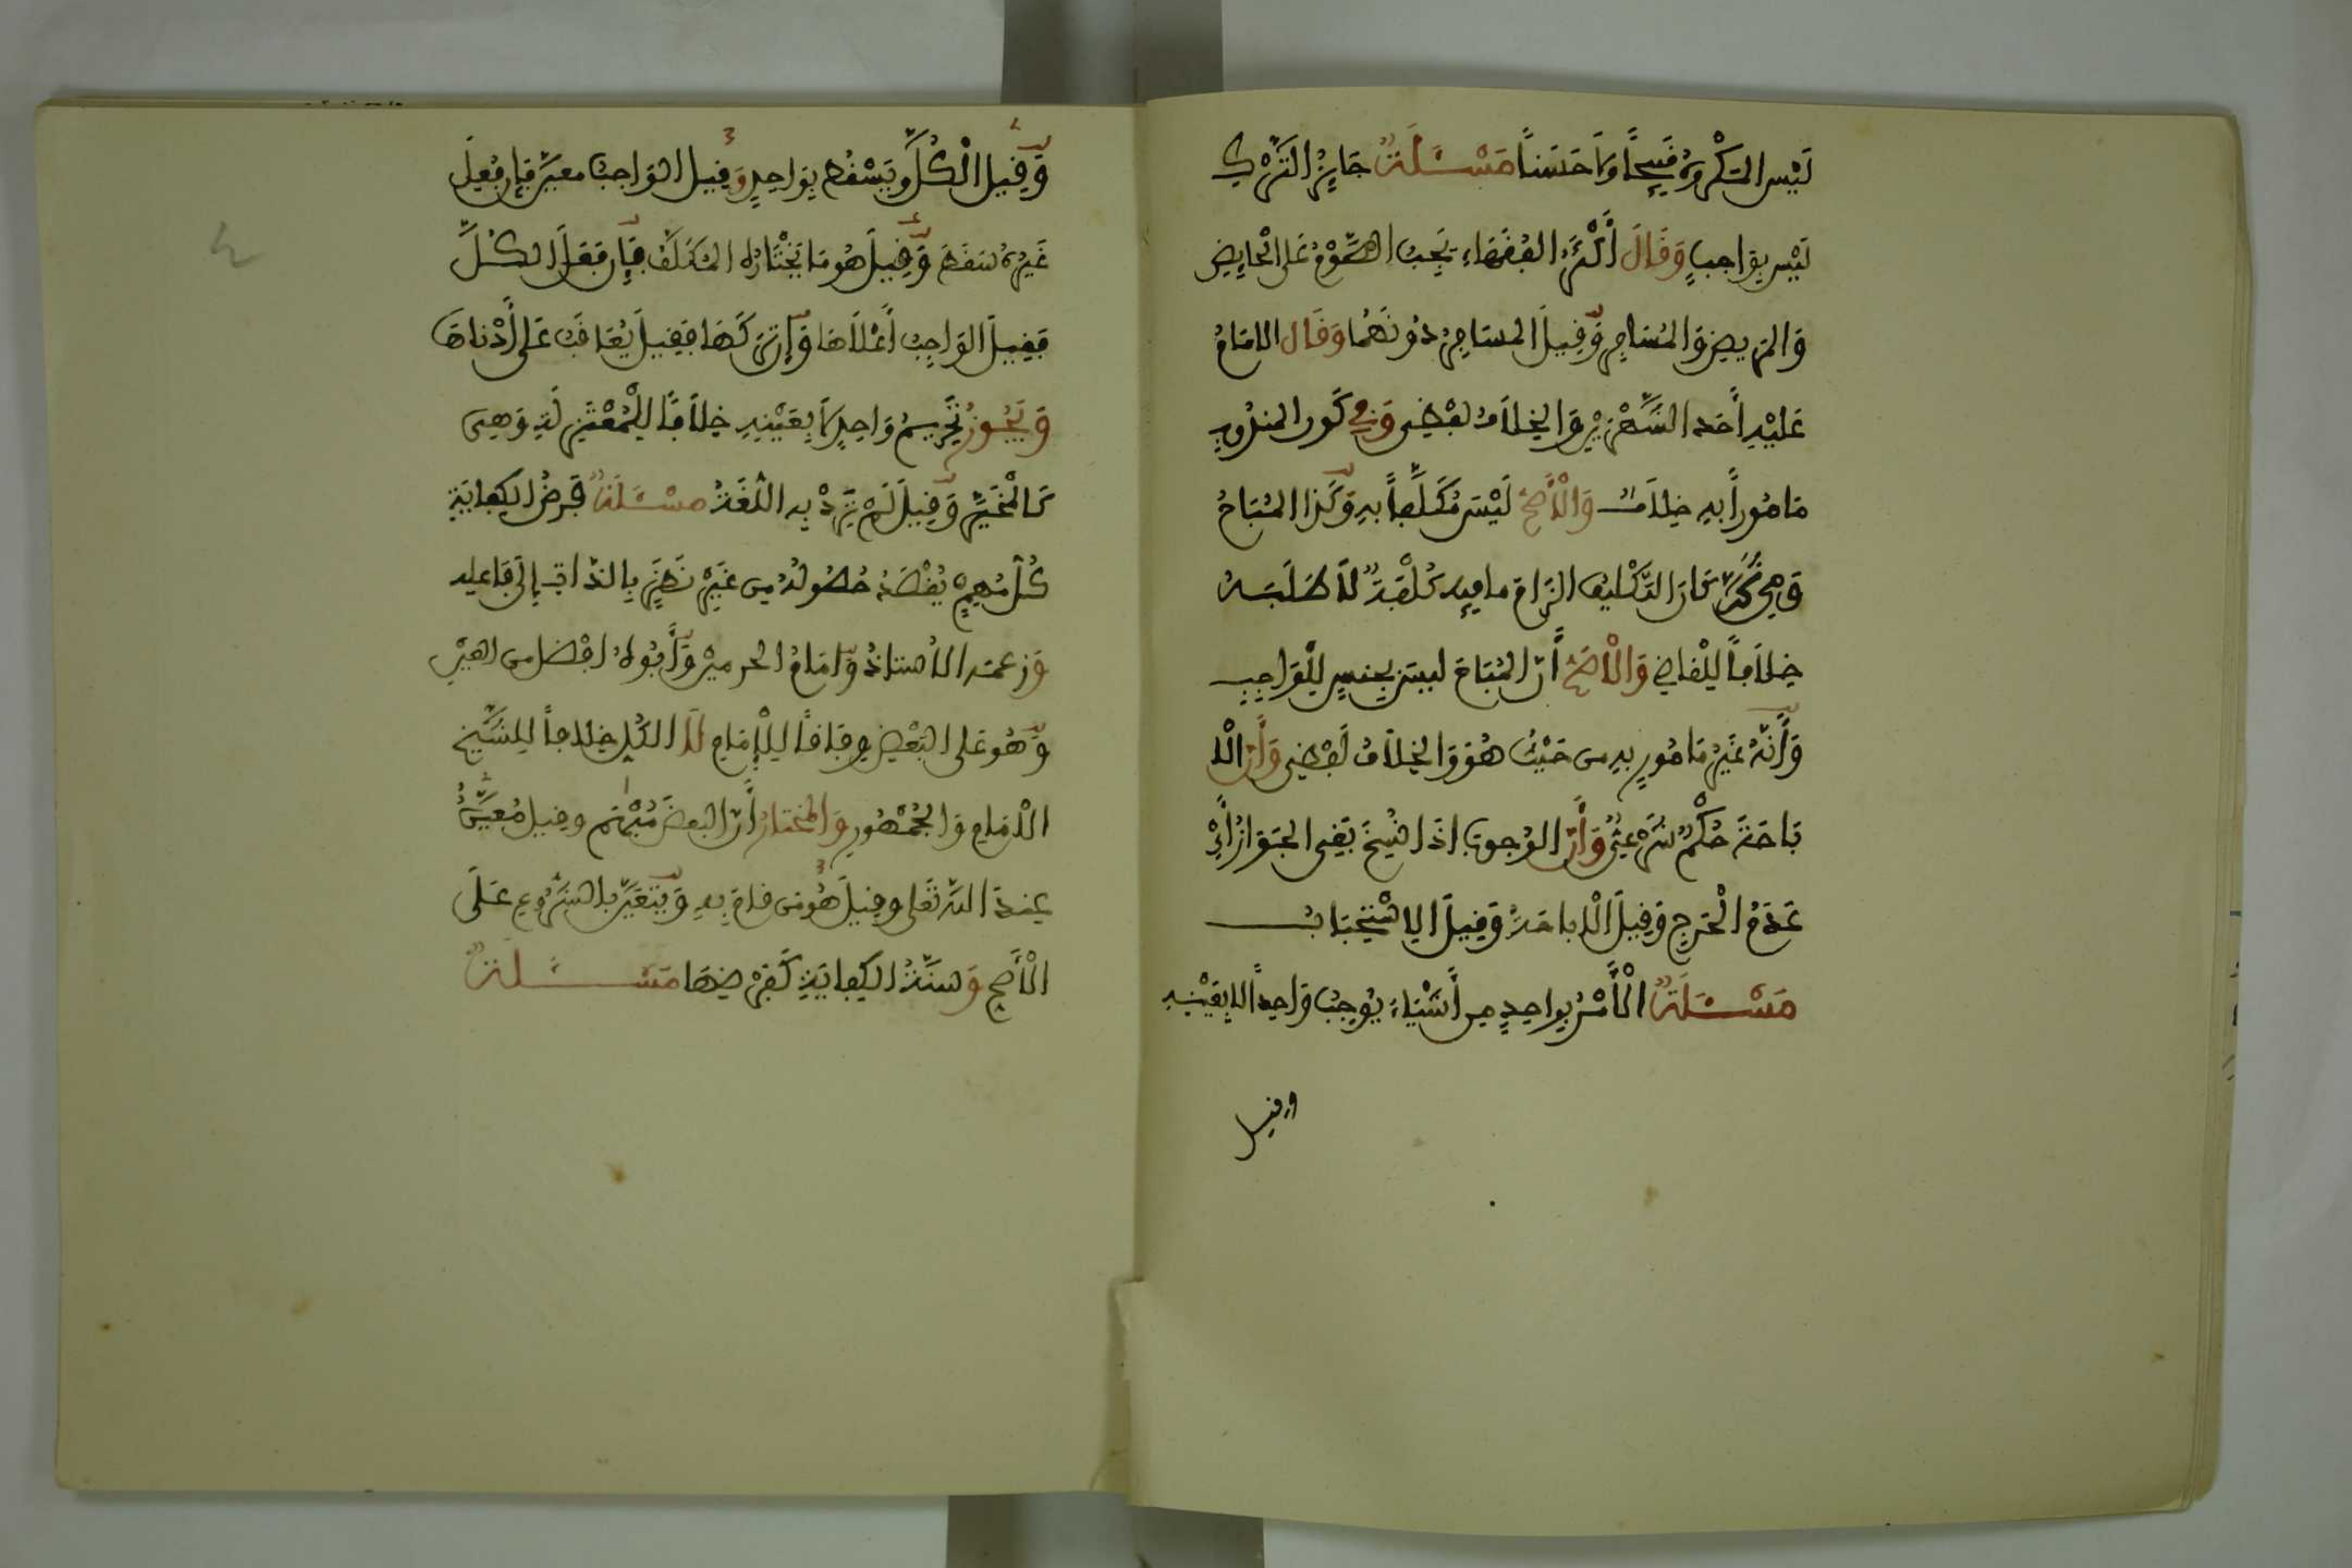 لَيْسَ المَكْرُوهُ قَبِيحًا وَلَا حَسَنًا مَسْـَٔلَةٌ جَايِزُ التَّرْكِ
لَيْسَ بِوَاجِبٍ وَقَالَ أَكْثَرُ الفُقَهَاءِ يَجِبُ الصَّوْمُ عَلَى الْحَايِضِ
وَالمَرِيضِ وَالمُسَافِرِ وَقِيلَ المُسَافِرُ دُونَهُمَا وَقَالَ الامَامُ
عَلَيْهِ أَحَدُ الشَّهْرَيْنِ وَالخِلَافُ لَفْظِي وَفِي كَوْنِ المندُوبِ
مَامُورًا بِهِ خِلَافٌ وَالْأَصَحُّ لَيْسَ مُكَلَّفًا بِهِ وَكَذَا المُبَاحُ
وَمِنْ ثَمَّ كَانَ التَّكْلِيفُ الزَامَ ما فِيهِ كُلْفَةٌ لَا طَلَبَهُ
خِلَافًا لِلْقَاضِي وَالْأَصَحُّ أَنَّ المُبَاحَ لَيسَ بِجِنسٍ لِلْوَاجِبِ
وَأَنَّهُ غَيْرُ مَامُورٍ بِهِ مِن حَيْثُ هُوَ وَالخِلَافُ لَفْظِي وَأَنَّ الْا
بَاحَةَ حُكْمٌ شَرْعِيٌّ وَأَنَّ الوُجُوبَ اذَا نُسِخَ بَقِيَ الجَوَازُ أَيْ
عَدَمُ الْحَرَجِ وَقِيلَ الْابَاحَةُ وَقِيلَ الِاسْتِحْبَابُ
مَسْـَٔلَةٌ الْأَمْرُ بِوَاحِدٍ مِن أَشْيَاءَ يُوجِبُ وَاحِدًا لَا بِعَيْنِهِ
وقيل
وَقِيلَ الْكُلَّ وَيَسْقُطُ بِوَاحِدٍ وَقِيلَ الوَاجِبُ مُعَيَّن فَإِن فُعِلَ
غَيْرُهُ سَقَطَ وَقِيلَ هُوَ مَا يَخْتَارُهُ المُكَلَّف فَإِن فَعَلَ الكُلَّ
فَقِيلَ الوَاجِبُ أَعْلَاهَا وَإِن تَرَكَهَا فَقِيلَ يُعَاقَبُ عَلَى أَدْنَاهَا
وَيَجُوزُ تَحْرِيمُ وَاحِدٍ لَا بِعَيْنِهِ خِلَافًا لِلْمُعْتَزِلَةِ وَهِيَ
كَالْمُخَيَّرِ وَقِيلَ لَمْ تَرِدْ بِهِ اللُّغَةُ مَسْـَٔلَةٌ فَرضُ الكِفَايَةِ
كُلُّ مُهِمٍّ يُقْصَدُ حُصُولُهُ مِن غَيْرِ نَظَرٍ بِالذَّاتِ إِلَى فَاعِلِهِ
وَزَعَمَهُ الأُستَاذُ وَامَامُ الحَرَمَيْنِ وَأَبُوهُ افْضَلَ مِن العَيْنِ
وَهُوَ عَلَى البَعْضِ وِفَاقًا لِلْإِمَامِ لَا الكُلِّ خِلَافًا لِلشَّيْخ
الْامَامِ وَالجُمْهُورِ وَالمُختَارُ أَنَّ البَعضَ مُبْهَم وَقِيلَ مُعَيَّنٌ
عِندَ اللَّهِ تَعَلى وَقِيلَ هُوَ مَن قَامَ بِهِ وَيَتَعَيَّنُ بِالشُّرُوعِ عَلَى
الْأَصَحِّ وَسُنَّةُ الكِفَايَةِ كَفَرْضِهَا مَسْـَٔلَةٌ